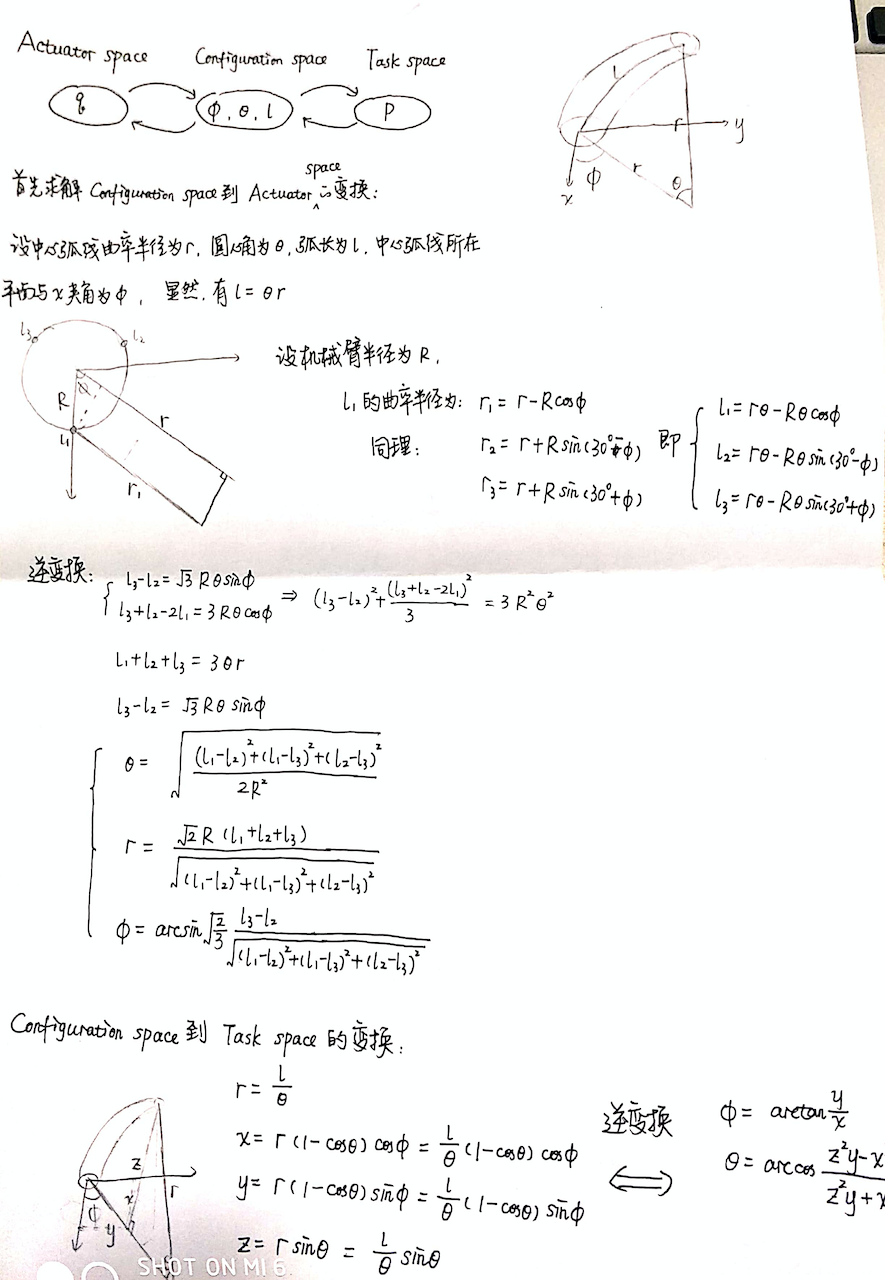 Actuator space Configuration space Task space
q ϕ, θ, l P
L
r
y
ϕ r θ
x
首先求解 Configuration space 到 Actuator space 的变换:
设中心弧线曲率半径为r, 圆心角为θ, 弧长为l, 中心弧线所在
平面与x夹角为ϕ, 显然, 有 l = θr
l₃ l₂
R ϕ r
l₁
r₁
设机械臂半径为R,
l₁的曲率半径为: r₁ = r-Rcosϕ
同理: r₂ = r+Rsin(30°-ϕ)
r₃ = r+Rsin(30°+ϕ)
即 { l₁ = rθ-Rθcosϕ
l₂ = rθ-Rθsin(30°-ϕ)
l₃ = rθ-Rθsin(30°+ϕ)
逆变换: { l₃-l₂ = √3 Rθsinϕ
l₃+l₂-2l₁ = 3Rθcosϕ ⇒ (l₃-l₂)² + (l₃+l₂-2l₁)²/3 = 3R²θ²
l₁+l₂+l₃ = 3θr
l₃-l₂ = √3 Rθ sinϕ
θ = √(((l₁-l₂)²+(l₁-l₃)²+(l₂-l₃)²)/2R²)
r = √2 R(l₁+l₂+l₃)/√((l₁-l₂)²+(l₁-l₃)²+(l₂-l₃)²)
ϕ = arcsin √(2/3) (l₃-l₂)/√((l₁-l₂)²+(l₁-l₃)²+(l₂-l₃)²)
Configuration space 到 Task space 的变换:
z
r
x
ϕ
y
r = l/θ
x = r(1-cosθ)cosϕ = l/θ (1-cosθ)cosϕ
y = r(1-cosθ)sinϕ = l/θ (1-cosθ)sinϕ
z = r sinθ = l/θ sinθ
逆变换
⟺
ϕ = arctan y/x
θ = arccos (z²y-x)/(z²y+x)
SHOT ON MI 6